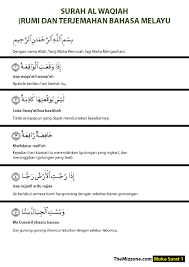 SURAH AL WAQIAH
(RUMI DAN TERJEMAHAN BAHASA MELAYU
بِسْمِ اللَّهِ الرَّحْمَٰنِ الرَّحِيمِ
Dengan nama Allah, Yang Maha Pemurah, lagi Maha Mengasihani
إِذَا وَقَعَتِ الْوَاقِعَةُ
Izaa waqa'atil waaqi'ah
Apabila berlaku hari kiamat itu,
لَيْسَ لِوَقْعَتِهَا كَاذِبَةٌ
Tiada sesiapapun yang dapat mendustakan kejadiannya.
خَافِضَةٌ رَافِعَةٌ
Khafidatur raafi'ah
Kejadian hari kiamat itu merendahkan (golongan yang ingkar), dan
meninggikan (golongan yang taat).
إِذَا رُجَّتِ الْأَرْضُ رَجًّا
Izaa rujjatil ardu rajjaa
(Ia berlaku) semasa bumi bergoncang dengan sebebar-sebebar goncangan,
وَبُسَّتِ الْجِبَالُ بَسًّا
Wa bussatil jibaalu bassaa
Dan gunung-ganang dihancur leburkan dengan selebur-leburnya,
TheMizzone.com Muka Surat 1